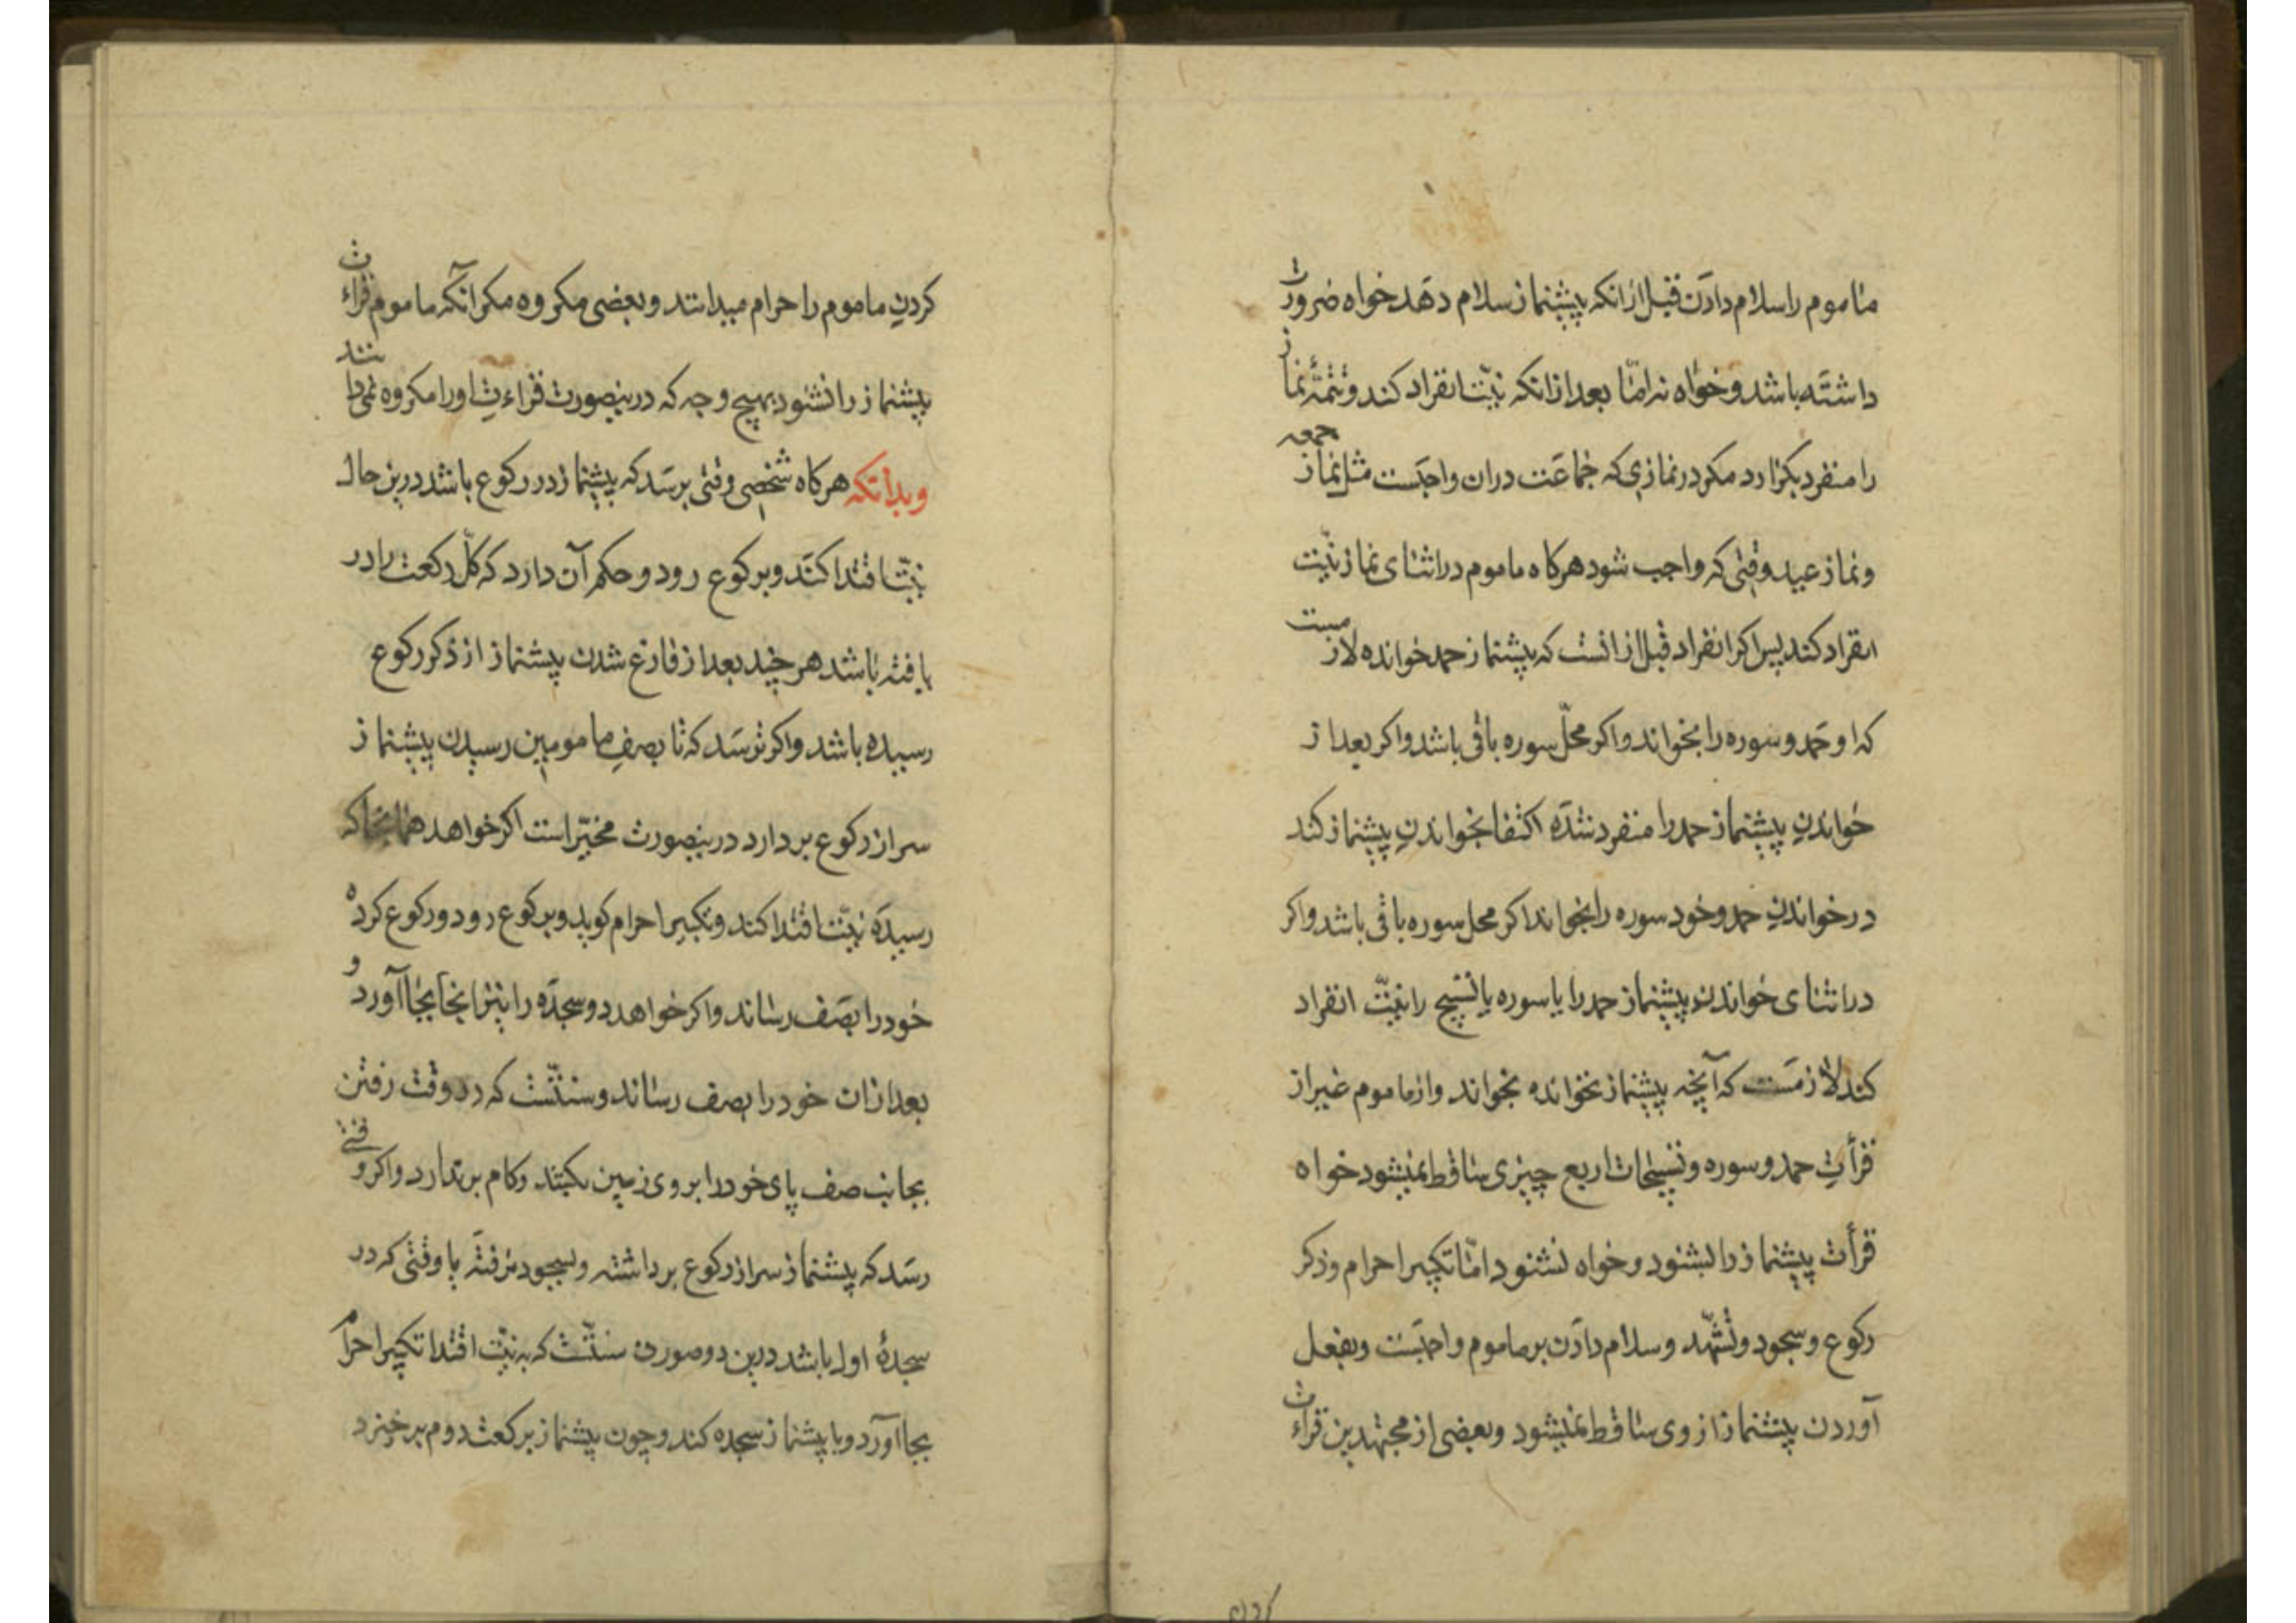 ماموم را سلام دادن قبل ازانکه پیشنماز سلام دهد خواه ضرورت
داشته باشد و خواه نه امّا بعد ازانکه نیّت انفراد کند و تتمّهٔ نماز
را منفرد بکزارد مکر در نمازی که جماعت دران واجبست مثل نماز جمعه
و نماز عید وقتی که واجب شود هرکاه ماموم در اثنای نماز نیّت
انفراد کند پس اکر انفراد قبل از انست که پیشنماز حمد خوانده لازمست
که او حمد و سوره را بخواند و اکر محلّ سوره باقی باشد و اکر بعد از
خواندنِ پیشنماز حمد را منفرد شده اکتفا بخواندنِ پیشنماز کند
در خواندنِ حمد و خود سوره را بخواند اکر محل سوره باقی باشد و اکر
در اثنای خواندنِ پیشنماز حمد را یا سوره یا تسبیح را نیّت انفراد
کند لازمست که آنچه پیشنماز نخوانده بخواند و از ماموم غیر از
قرأتِ حمد و سوره و تسبیحات اربع چیزی ساقط نمیشود خواه
قرأت پیشنماز را بشنود و خواه نشنود امّا تکبیر احرام و ذکر
رکوع و سجود و تشهّد و سلام دادن بر ماموم واجبست و بفعل
آوردن پیشنماز از وی ساقط نمیشود و بعضی از مجتهدین قراءت
کردنِ ماموم را حرام میدانند و بعضی مکروه مکر آنکه ماموم قراءت
پیشنماز را نشنود بهیچ وجه که درینصورت قراءتِ او را مکروه نمیدانند
و بدانکه هرکاه شخصی وقتی برسد که پیشنماز در رکوع باشد درین حال
نیّت اقتدا کند و برکوع رود و حکم آن دارد که کلّ رکعت را در
یافته باشد هر چند بعد از فارغ شدن پیشنماز از ذکر رکوع
رسیده باشد و اکر ترسد که تا بصفِ مامومین رسیدن پیشنماز
سر از رکوع بر دارد درینصورت مخیّر است اکر خواهد همانجا که
رسیده نیّت اقتدا کند و تکبیر احرام کوید و برکوع رود و رکوع کرده
خود را بصف رساند و اکر خواهد دو سجده را نیز انجا بجا آورد و
بعد ازان خود را بصف رساند و سنّتست که در وقت رفتن
بجانب صف پای خود را بر روی زمین بکشد و کام بر ندارد و اکر وقتی
رسد که پیشنماز سر از رکوع بر داشته و بسجود نرفته یا وقتی که در
سجدهٔ اول باشد درین دو صورت سنّتست که به نیّت اقتدا تکبیر احرام
بجا آورد و با پیشنماز سجده کند و چون پیشنماز برکعت دوم برخیزد